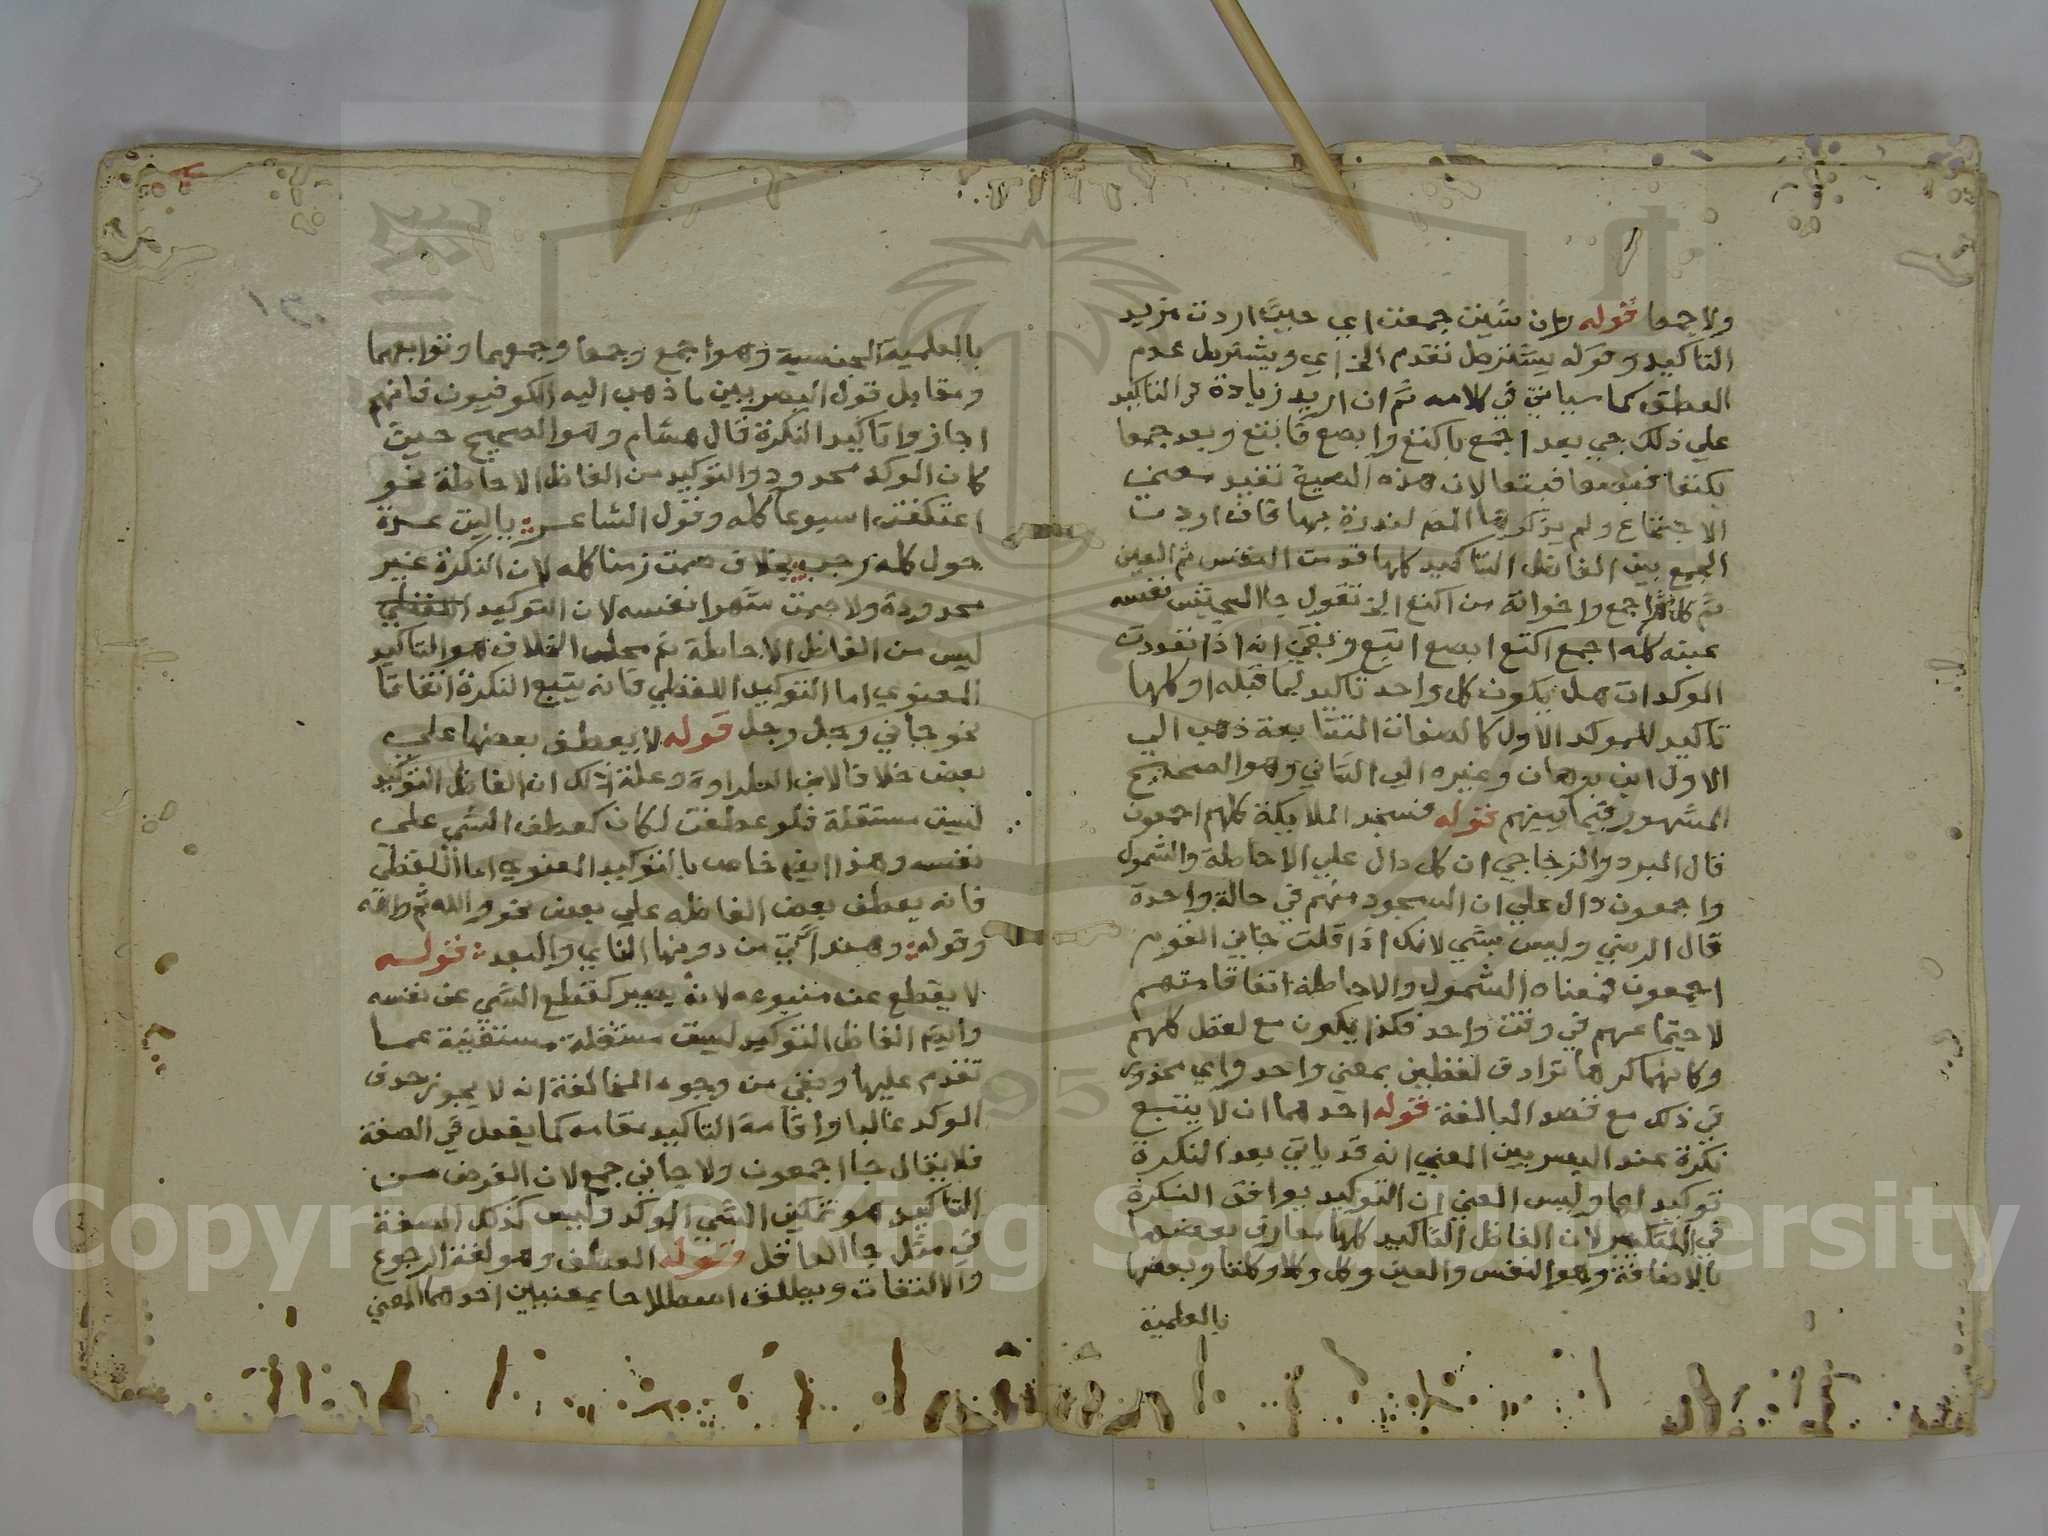 ولا جمعا قوله وان شيت جمعت اي حيث اردت مزيد
التاكيد وقوله بشرط تقدم الخ اي ويشترط عدم
العطف كما سياتي في كلامه ثم ان اريد زيادة في التاكيد
علي ذلك جي بعد اجمع باكتع وابصع فابتع وبعد جمعا
بكتعا فبصعا فبتعا لان هذه الصيغ تفيد معني
الاجتماع ولم يذكرها المص لندرة بها فان اردت
الجمع بين الفاظ التاكيد كلها قدمت النفس ثم العين
ثم كل ثم اجمع واخواته من اكتع الخ تقول جا الجيش نفسه
عينه كله اجمع اكتع ابصع ابتع وبقي انه اذا تعددت
الموكدات هل يكون كل واحد تاكيد لما قبله او كلها
تاكيد للموكد الاول كالصفات المتتابعة ذهب الي
الاول ابن برهان وغيره الي الثاني وهو الصحيح
المشهور فيما بينهم قوله فسجد الملايكة كلهم اجمعون
قال المبرد والزجاجي ان كل دال علي الاحاطة والشمول
واجمعون دال علي ان السجود منهم في حالة واحدة
قال الرضي وليس بشي لانك اذا قلت جاني القوم
اجمعون فمعناه الشمول والاحاطة اتفاقا منهم
لا اجتماعهم في وقت واحد فكذا يكون مع لفظ كلهم
وكانهما كرها ترادف لفظين بمعني واحد واي محذور
في ذلك مع قصد المبالغة قوله احدهما ان لا يتبع
نكرة عند البصريين المعني انه قد ياتي بعد النكرة
توكيد لها وليس المعني ان التوكيد يوافق النكرة
في التنكير لان الفاظ التاكيد كلها معارف بعضها
بالاضافة وهو النفس والعين وكل وكلا وكلتا وبعضها
بالعلمية
بالعلمية الجنسية وهو اجمع وجمعا وجمعهما وتوابعهما
ومقابل قول البصريين ما ذهب اليه الكوفيون فانهم
اجازوا تاكيد النكرة قال هشام وهو الصحيح حيث
كان الموكد محدودا والتوكيد من الفاظ الاحاطة نحو
اعتكفت اسبوعا كله وقول الشاعر ياليت عدة
حول كله رجب بخلاف صمت زمنا كله لان النكرة غير
محدودة ولا صمت شهرا نفسه لان التوكيد اللفظي
ليس من الفاظ الاحاطة ثم محل الخلاف هو التاكيد
المعنوي اما التوكيد اللفظي فانه يتبع النكرة اتفاقا
نحو جاني رجل رجل قوله لا يعطف بعضها علي
بعض خلافا لابن الطراوة وعلة ذلك ان الفاظ التوكيد
ليست مستقلة فلو عطفت لكان كعطف الشي علي
نفسه وهذا ايضا خاص بالتوكيد المعنوي اما اللفظي
فانه يعطف بعض الفاظه علي بعض نحو والله ثم والله
وقوله وهند اتي من دونها الناي والبعد قوله
لا يقطع عن متبوعه لانه يصير كقطع الشي عن نفسه
وايضا الفاظ التوكيد ليست مستقلة مستغنية عما
تقدم عليها وبقي من وجوه المخالفة انه لا يجوز حذف
الموكد غالبا واقامة التاكيد مقامه كما يفعل في الصفة
فلا يقال جا اجمعون ولا جاني جمع لان الغرض من
التاكيد هو تمكين الشي الموكد وليس كذلك الصفة
في مثل جا العاقل قوله العطف وهو لغة الرجوع
والالتفات ويطلق اصطلاحا بمعنيين احدهما المعني
Copyright © King Saud University